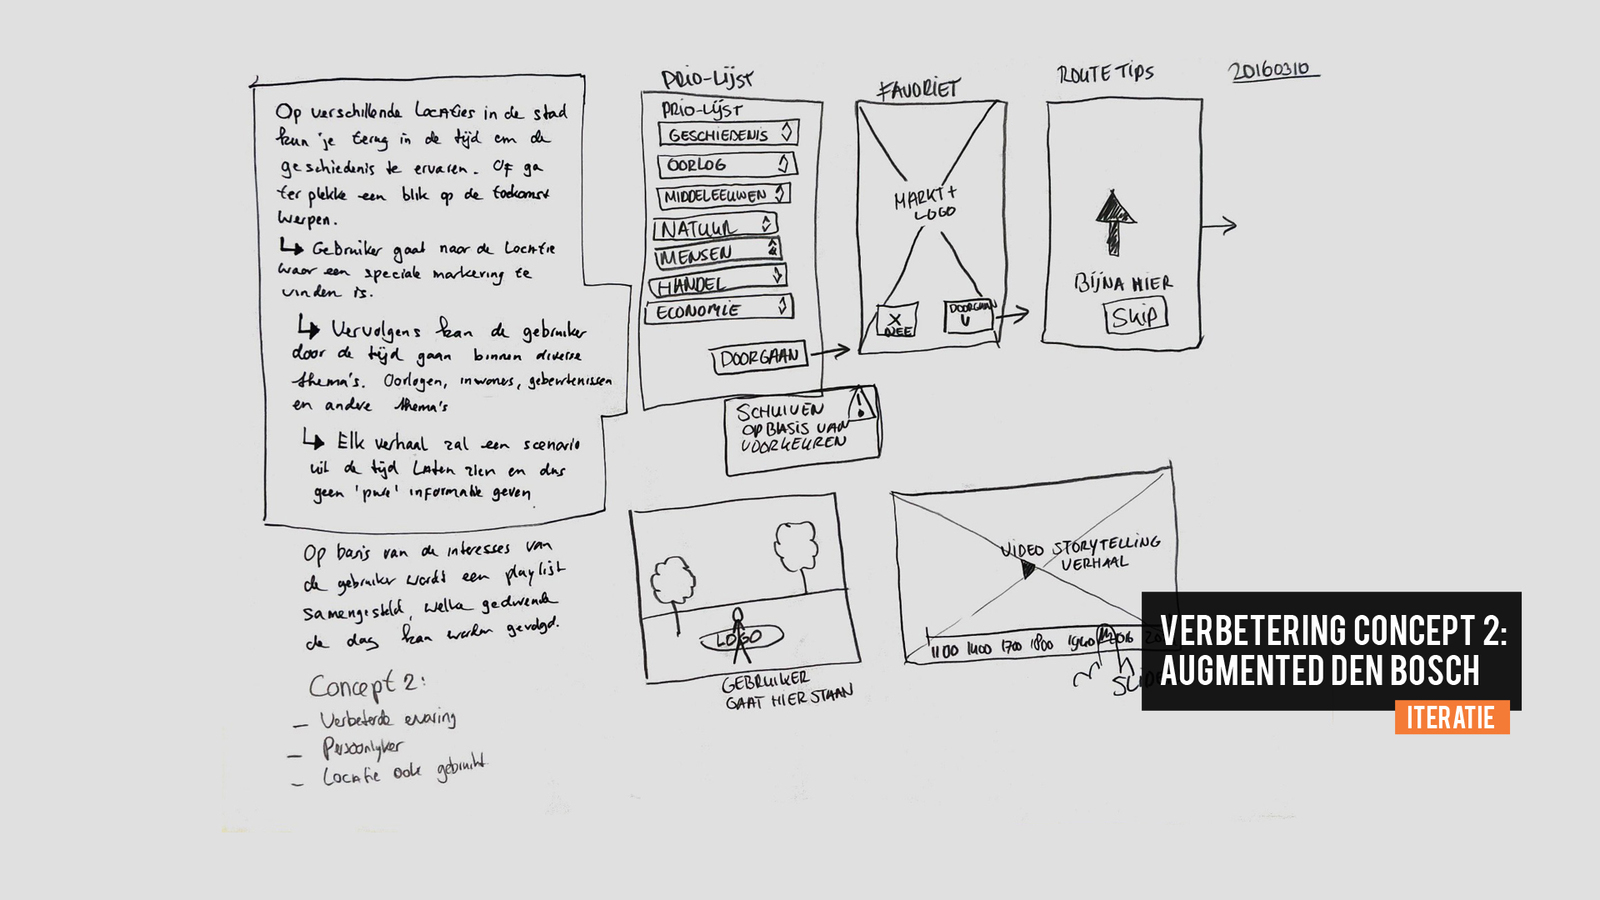 Op verschillende Locaties in de stad
kun je terug in de tijd om de
geschiedenis te ervaren. Of ga
ter plekke een blik op de toekomst
werpen.
↳ Gebruiker gaat naar de Locatie
waar een speciale markering te
vinden is.
↳ Vervolgens kan de gebruiker
door de tijd gaan binnen diverse
thema's. Oorlogen, inwoners, gebeurtenissen
en andere thema's
↳ Elk verhaal zal een scenario
uit de tijd Laten zien en dus
geen 'pure' informatie geven
Op basis van de interesses van
de gebruiker wordt een playlijst
samengesteld, welke gedurende
de dag kan worden gevolgd.
Concept 2:
– Verbeterde ervaring
– Persoonlijker
– Locatie ook gebruikt
PRIO-LIJST
PRIO-LIJST
GESCHIEDENIS
OORLOG
MIDDELEEUWEN
NATUUR
MENSEN
HANDEL
ECONOMIE
DOORGAAN
SCHUIVEN
OP BASIS VAN
VOORKEUREN
!
FAVORIET
MARKT +
LOGO
X
NEE
DOORGAAN
V
ROUTE TIPS
BIJNA HIER
SKIP
20160310
LOGO
GEBRUIKER
GAAT HIER STAAN
VIDEO STORYTELLING
VERHAAL
1100 1400 1700 1800 1940 2016 20
SLIDE
VERBETERING CONCEPT 2:
AUGMENTED DEN BOSCH
ITERATIE